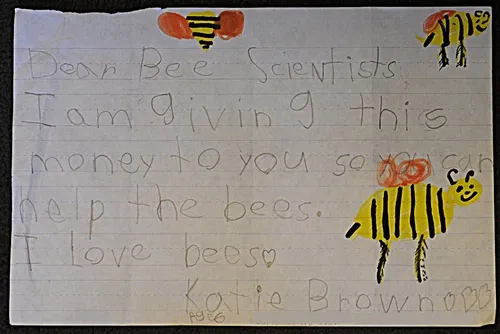 Dear Bee Scientists
I am giving this
money to you so you can
help the bees.
I Love bees♡
Katie Brown♡♡♡